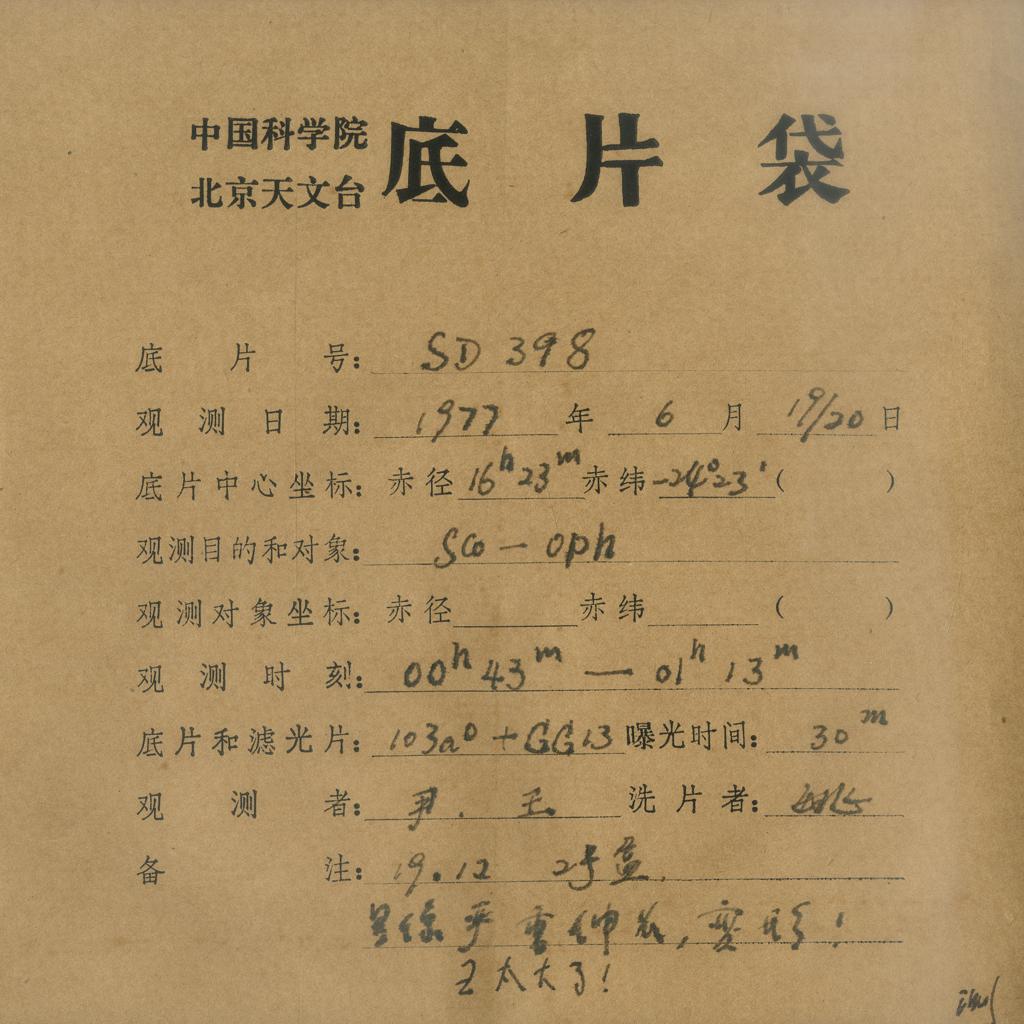 中国科学院
北京天文台
底片袋
底片号: SD 398
观测日期: 1977 年 6 月 19/20 日
底片中心坐标: 赤径 16h23m 赤纬 -24°23' ( )
观测目的和对象: Sco — Oph
观测对象坐标: 赤径 赤纬 ( )
观测时刻: 00h 43m — 01h 13m
底片和滤光片: 103aO + GG13 曝光时间: 30m
观测者: 尹. 王. 洗片者:
备注: 19.12 2号盒.
星像严重伸长, 变形!
太大了!